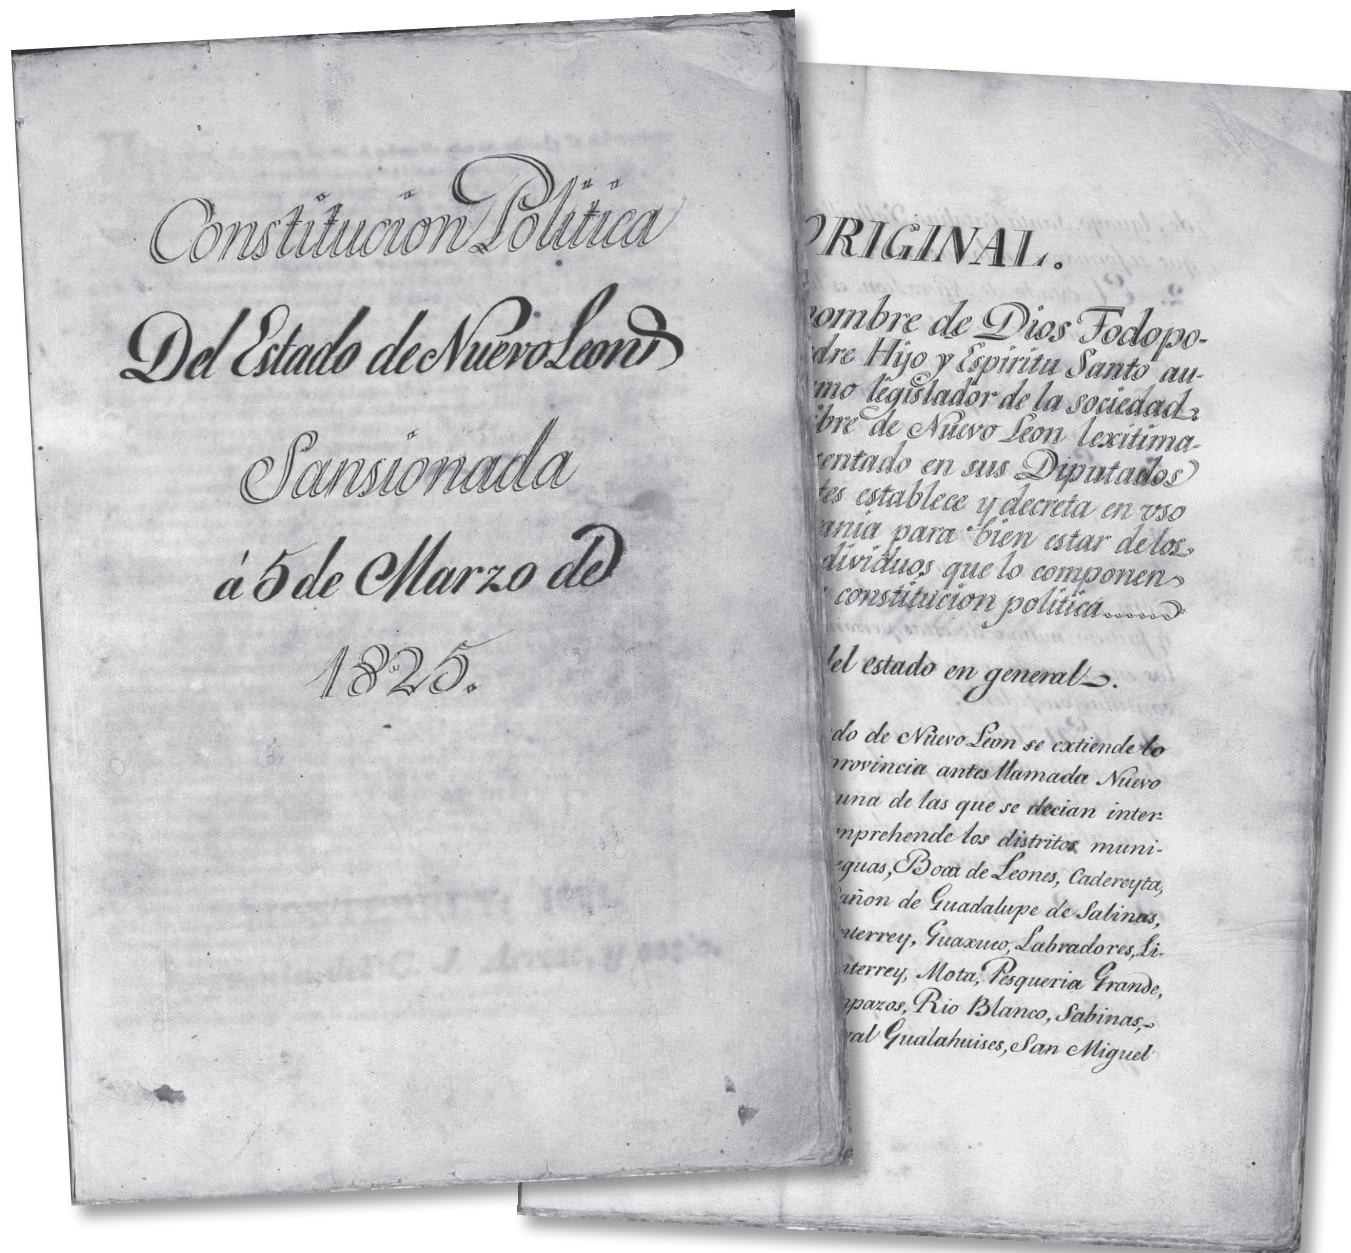 Constitucion Politica
Del Estado de Nuevo Leon
Sansionada
á 5 de Marzo de
1825.
ORIGINAL.
nombre de Dios Todopo-
dre Hijo y Espiritu Santo au-
mo legislador de la sociedad
ibre de Nuevo Leon lexitima-
sentado en sus Diputados
tes establece y decreta en vso
ania para bien estar de los
dividuos que lo componen
constitucion politica
del estado en general.
do de Nuevo Leon se extiende lo
provincia antes llamada Nuevo
una de las que se decian inter-
mprehende los distritos muni-
eguas, Boca de Leones, Cadereyta,
añon de Guadalupe de Salinas,
nterrey, Guaxuco, Labradores, Li-
nterrey, Mota, Pesqueria Grande,
mpazos, Rio Blanco, Sabinas,
val Gualahuises, San Miguel